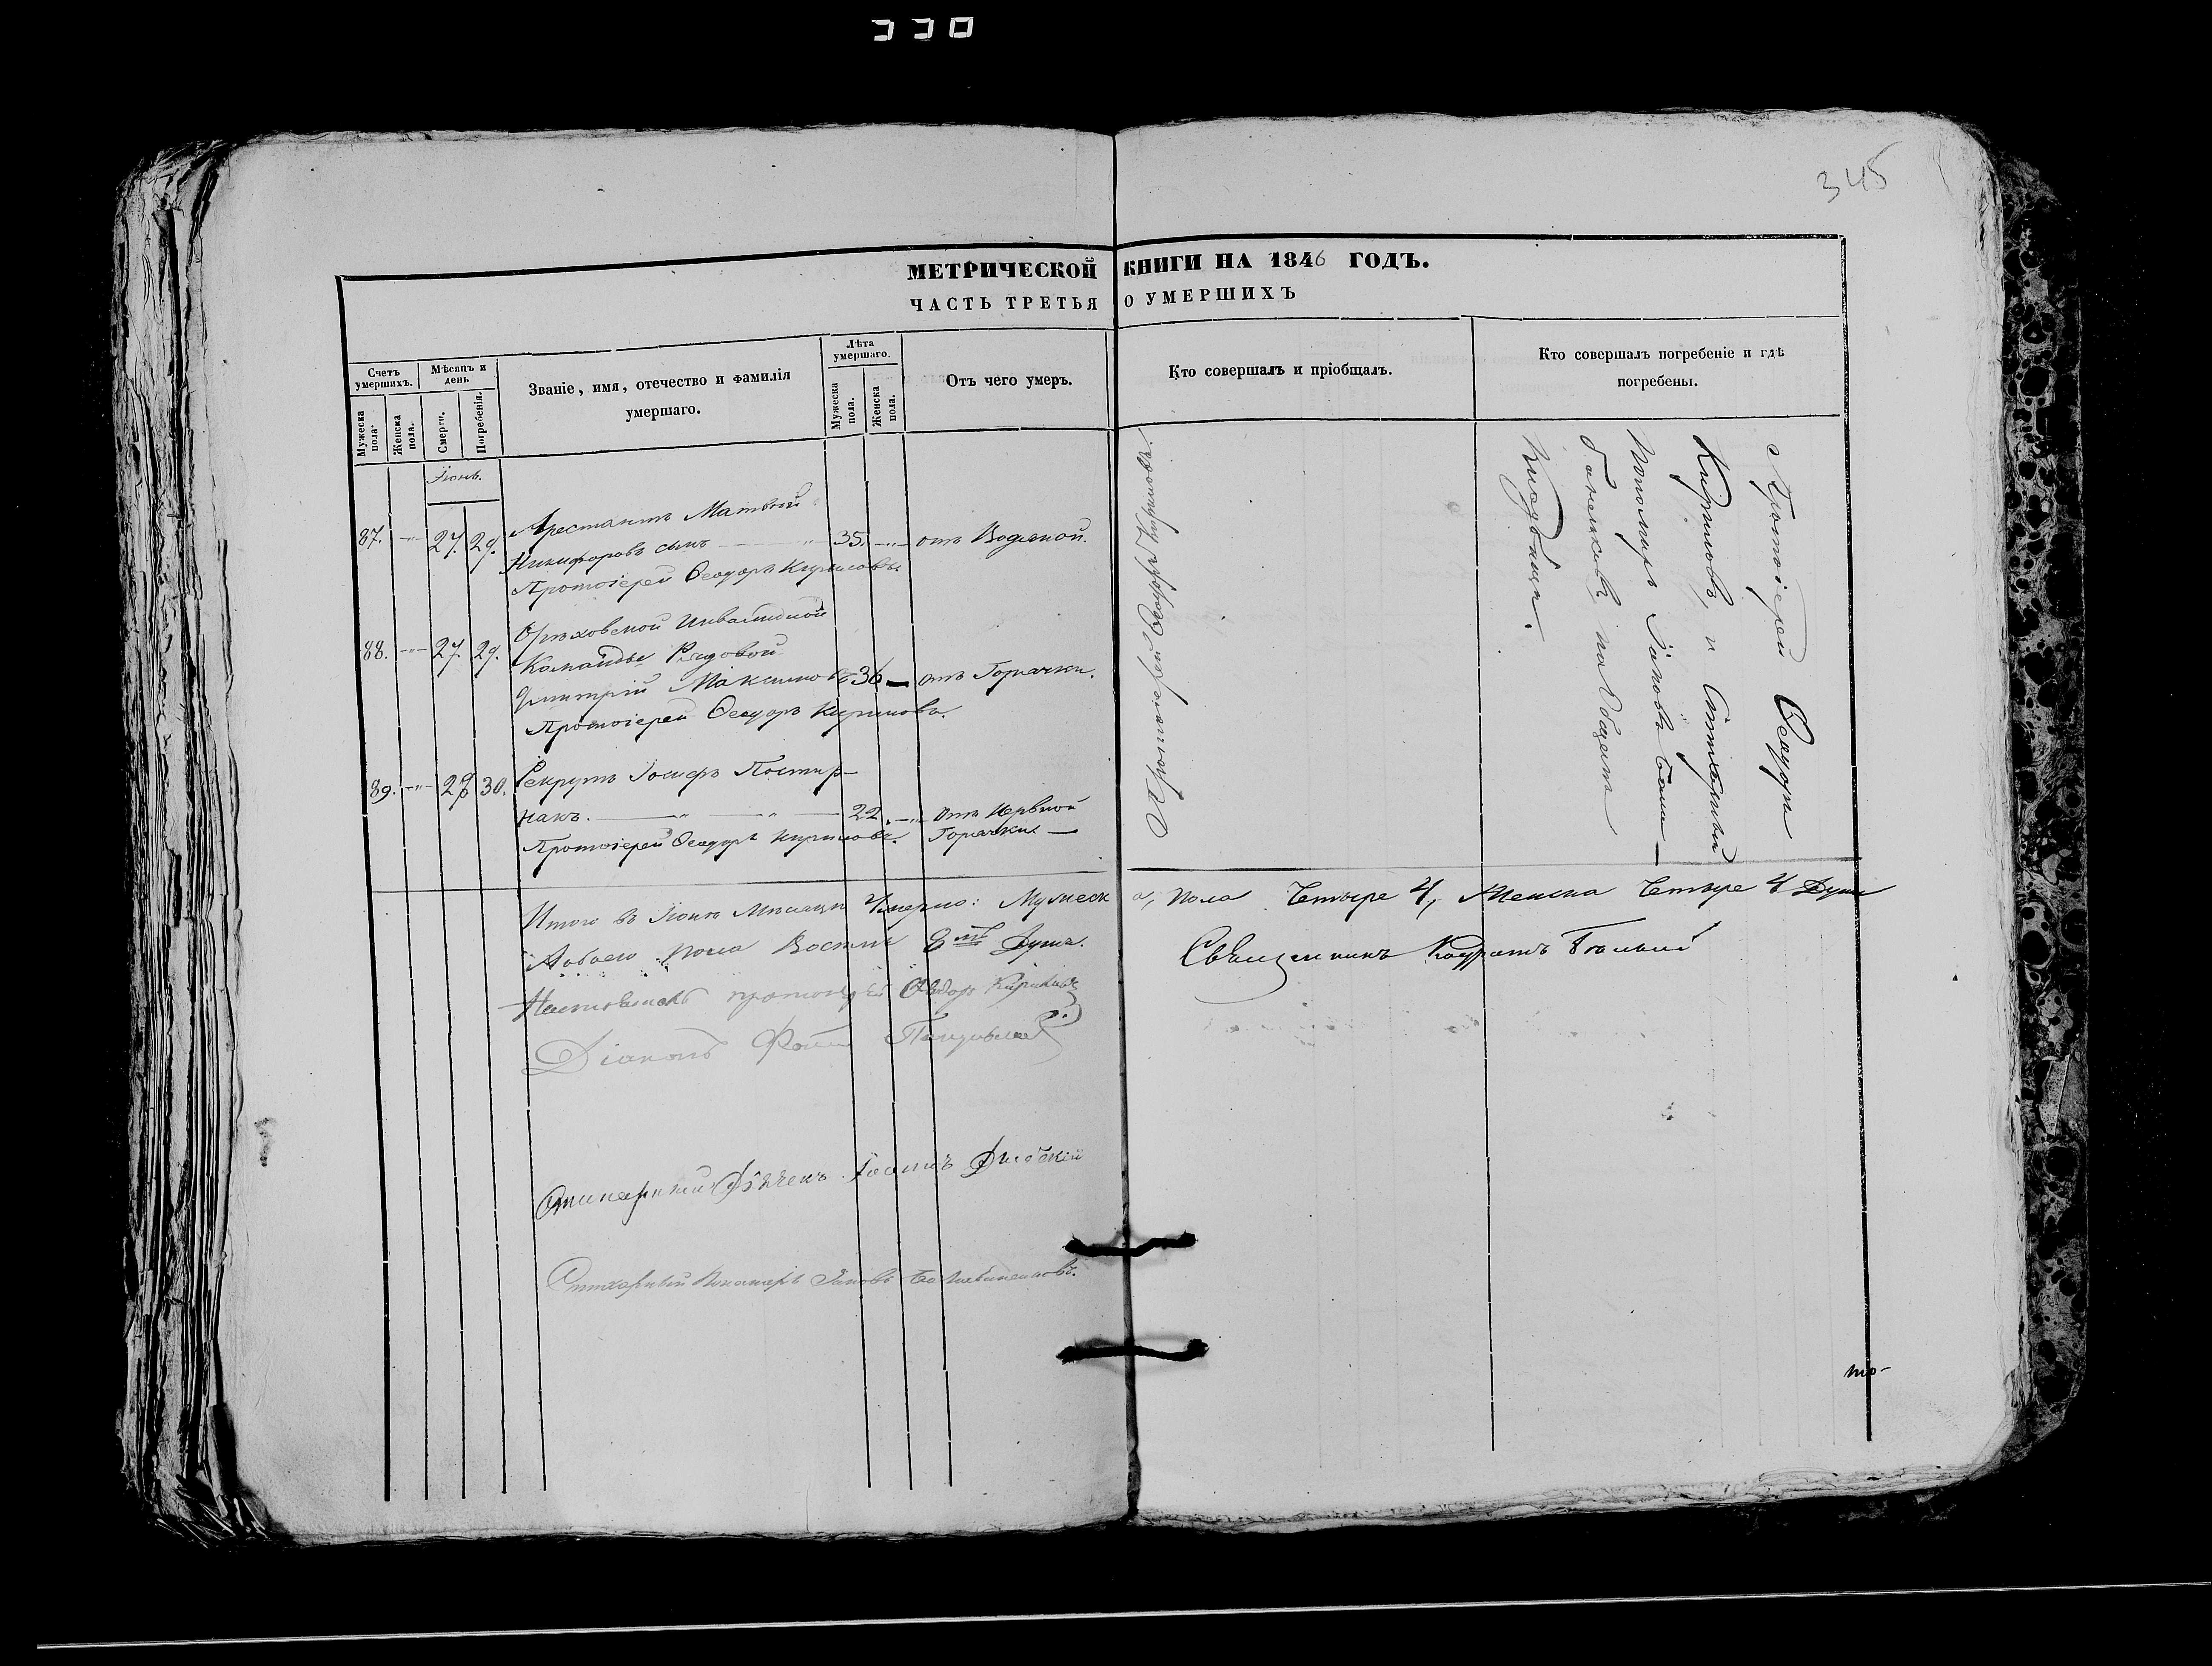 330
345
МЕТРИЧЕСКОЙ КНИГИ НА 1846 ГОДЪ.
ЧАСТЬ ТРЕТЬЯ О УМЕРШИХЪ
Счетъ умершихъ.
Мужеска пола.
Женска пола.
Мѣсяцъ и день
Смерти.
Погребенія.
Званіе, имя, отечество и фамилія
умершаго.
Лѣта умершаго.
Мужеска пола.
Женска пола.
Отъ чего умеръ.
Кто совершалъ и пріобщалъ.
Кто совершалъ погребеніе и гдѣ
погребены.
Іюнь.
Арестантъ Матвѣй
87. 27. 29. Никифоровъ сынъ 35. отъ Водяной.
Протоіерей Ѳеодоръ Кириловъ
Орѣховской Инвалидной
88. 27. 29. Команды Рядовой
Дмитрій Максимовъ 36 отъ Горячки.
Протоіерей Ѳеодоръ Кириловъ.
89. 28 30. Рекрутъ Іосифъ Постир-
накъ. 22. отъ Нервной
Протоіерей Ѳеодоръ Кириловъ. Горячки.
Протоіерей Ѳеодоръ Кириловъ.
Протоіерей Ѳеодоръ
Кириловъ, и Стихарный
Пономарь Іаковъ
на Общемъ
Кладбищѣ.
Итого въ Іюнѣ Мѣсяцѣ Умерло: Мужеска, пола Четыре 4, Женска Четыре 4 Души
Аобоего пола Восемь 8мь Душъ.
Священникъ Кодратъ
протоіерей Ѳеодоръ Кириловъ
Діаконъ
Стихарный Дьячекъ
Стихарный Пономарь Іаковъ